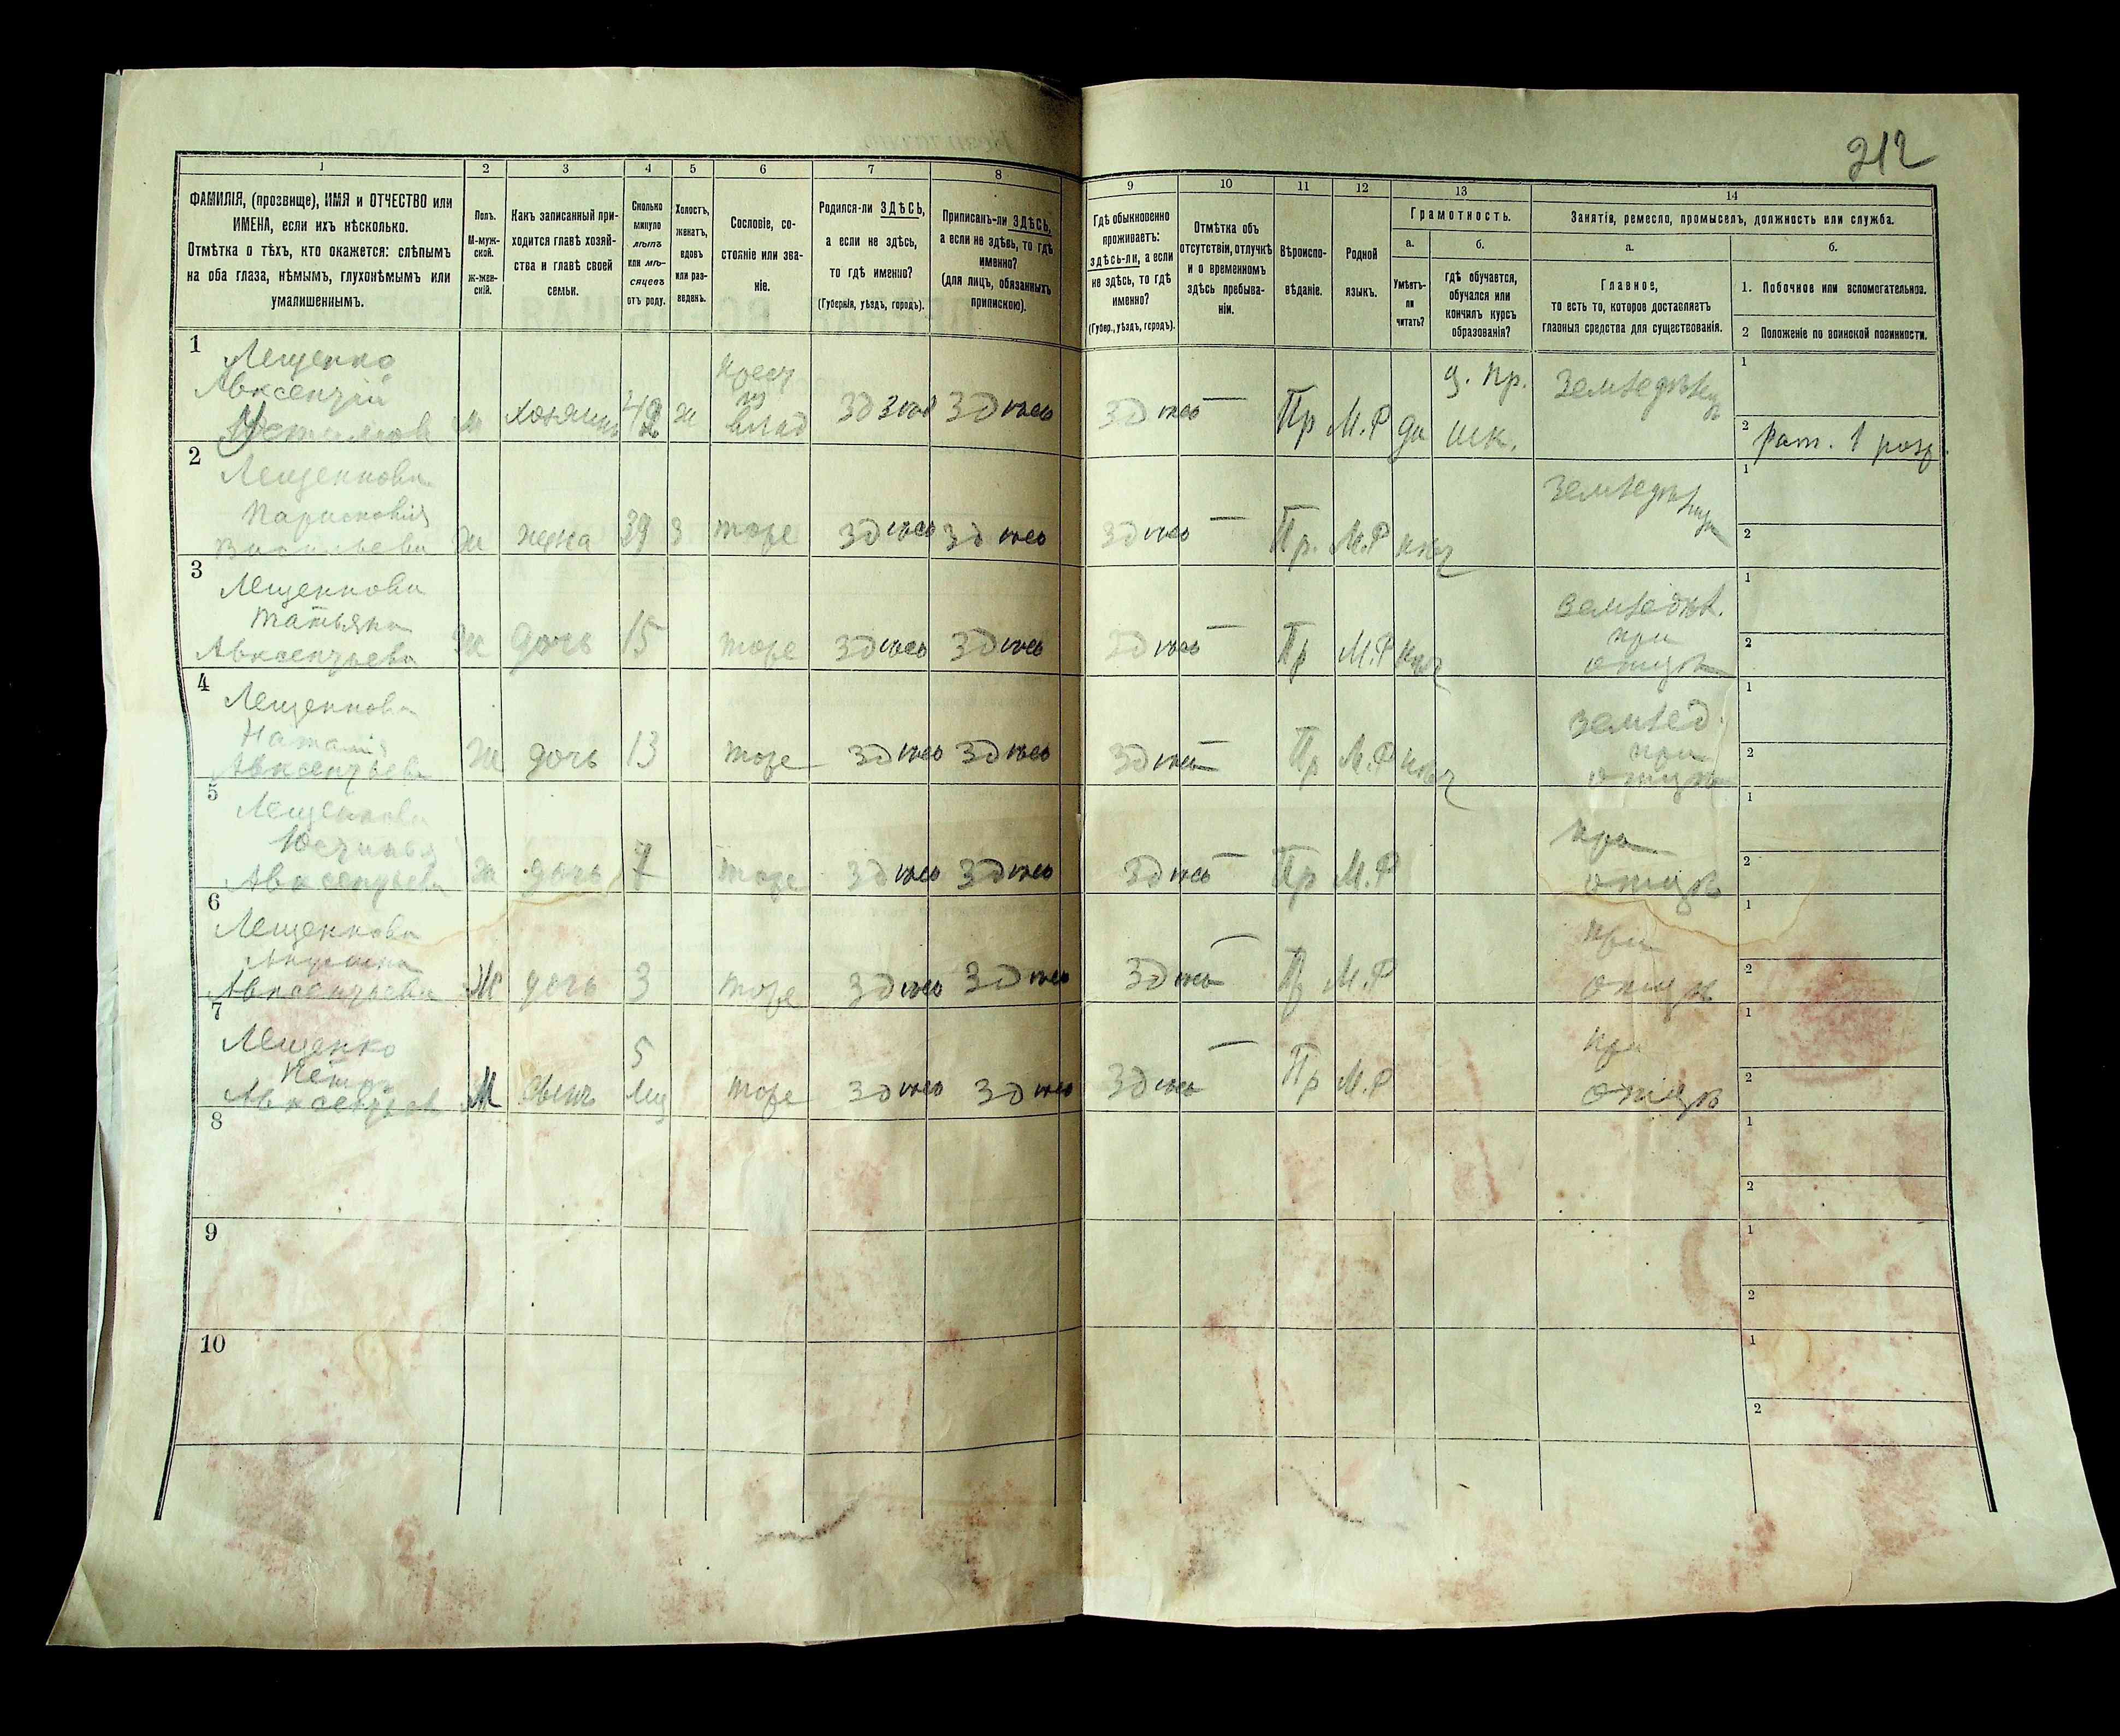 212
1 2 3 4 5 6 7 8 9 10 11 12 13 14
ФАМИЛІЯ, (прозвище), ИМЯ и ОТЧЕСТВО или
ИМЕНА, если ихъ нѣсколько.
Отмѣтка о тѣхъ, кто окажется: слѣпымъ
на оба глаза, нѣмымъ, глухонѣмымъ или
умалишеннымъ.
Полъ.
М-муж-
ской.
ж-жен-
скій.
Какъ записанный при-
ходится главѣ хозяй-
ства и главѣ своей
семьи.
Сколько
минуло
лѣтъ
или мѣ-
сяцевъ
отъ роду.
Холостъ,
женатъ,
вдовъ
или раз-
веденъ.
Сословіе, со-
стояніе или зва-
ніе.
Родился-ли ЗДѢСЬ,
а если не здѣсь,
то гдѣ именно?
(Губернія, уѣздъ, городъ).
Приписанъ-ли ЗДѢСЬ,
а если не здѣсь, то гдѣ
именно?
(для лицъ, обязанныхъ
припискою).
Гдѣ обыкновенно
проживаетъ:
здѣсь-ли, а если
не здѣсь, то гдѣ
именно?
(Губер., уѣздъ, городъ).
Отмѣтка объ
отсутствіи, отлучкѣ
и о временномъ
здѣсь пребыва-
ніи.
Вѣроиспо-
вѣданіе.
Родной
языкъ.
Грамотность.
а. б.
Умѣетъ-
ли
читать?
гдѣ обучается,
обучался или
кончилъ курсъ
образованія?
Занятія, ремесло, промыселъ, должность или служба.
а. б.
Главное,
то есть то, которое доставляетъ
главныя средства для существованія.
1. Побочное или вспомогательное.
2 Положеніе по воинской повинности.
1
Лещенко
Авксентій
М хозяинъ ж
крест
из
влад
здѣсь здѣсь здѣсь — Пр М.Р да
ц. пр.
шк.
1
2 рат. 1 розр.
2
Лещенкова
Парасковія
Васильева Ж жена 39 З тоже здѣсь здѣсь здѣсь — Пр. М.Р нѣт
1
2
3
Лещенкова
Татьяна
Авксентьева Ж дочь 15 тоже здѣсь здѣсь здѣсь — Пр М.Р нѣт
земледѣл.
при
отцѣ
1
2
4
Лещенкова
Наталія
Авксентьева Ж дочь 13 тоже здѣсь здѣсь здѣсь — Пр М.Р нѣт
землед.
при
отцѣ
1
2
5
Лещенкова
Юстинья
Авксентьева Ж дочь 7 тоже здѣсь здѣсь здѣсь — Пр М.Р
при
отцѣ
1
2
6
Лещенкова
Авксентьева Ж дочь 3 тоже здѣсь здѣсь здѣсь — Пр М.Р
при
отцѣ
1
2
7
Лещенко
Петръ
Авксентьев М сынъ 5 мц тоже здѣсь здѣсь здѣсь — Пр М.Р
при
отцѣ
1
2
8
1
2
9
1
2
10
1
2